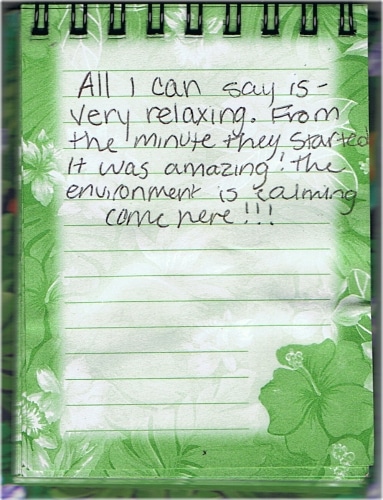 All I can say is -
very relaxing. From
the minute they started
it was amazing! the
environment is calming
come here!!!